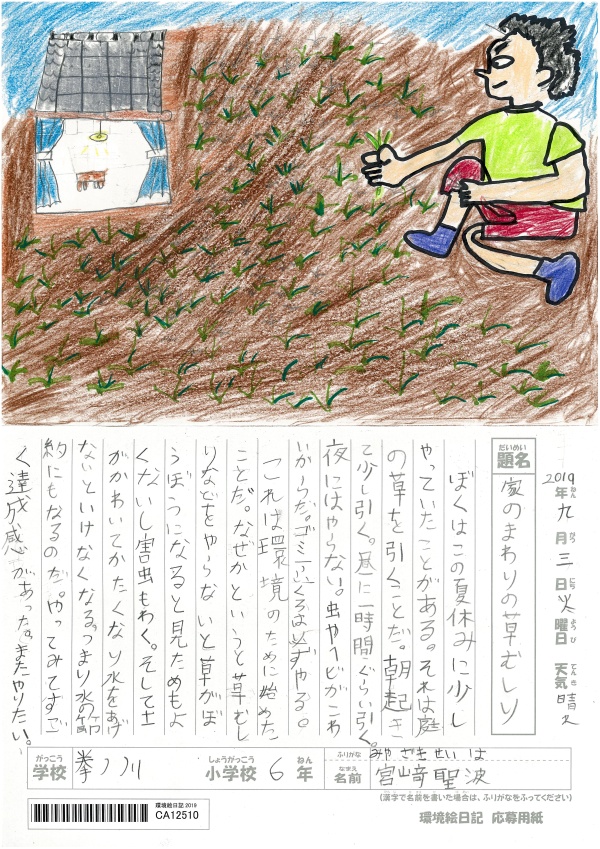 2019年九月三日火曜日 天気 晴れ
ねん がつ にち ようび てんき
だいめい
題名 家のまわりの草むしり
ぼくはこの夏休みに少し
やっていたことがある。それは庭
の草を引くことだ。朝起き
て少し引く。昼に一時間ぐらい引く。
夜にはやらない。虫やヘビがこわ
いからだ。ゴミぶくろは必ずやる。
これは環境のために始めた
ことだ。なぜかというと草むし
りなどをやらないと草がぼ
うぼうになると見ためもよ
くないし害虫もわく。そして土
がかわいてかたくなり水をあげ
ないといけなくなる。つまり水の節
約にもなるのだ。やってみてすご
く達成感があった。またやりたい。
がっこう しょうがっこう ねん
学校 拳ノ川 小学校 6年
ふりがな みやざきせいは
なまえ
名前 宮崎聖波
(漢字で名前を書いた場合は、ふりがなをふってください)
環境絵日記 2019
CA12510
環境絵日記 応募用紙